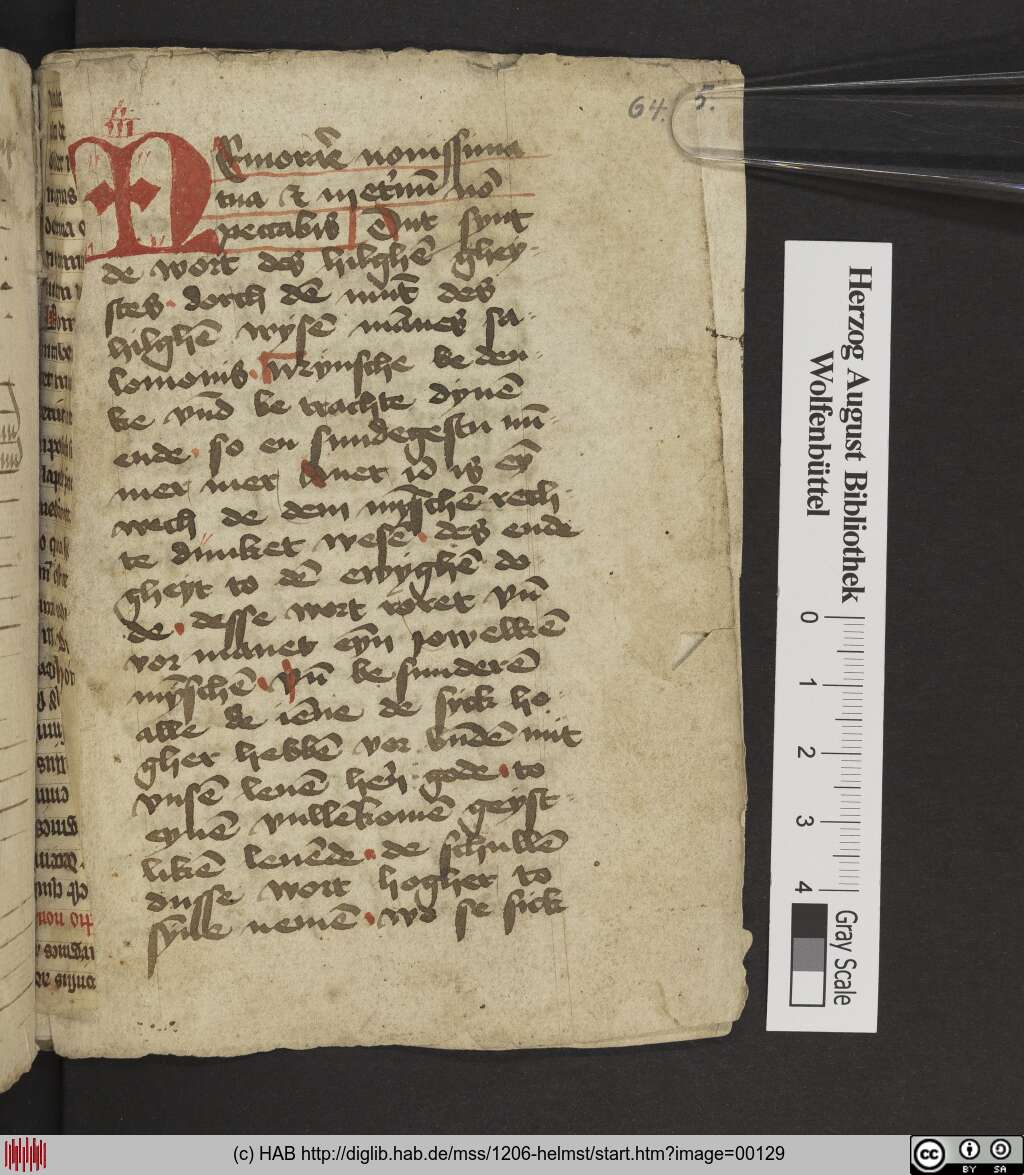 64. 5.
Memorare nouissima
tua & ineternū nō
peccabis Dut synt
de wort des hilghē ghey-
stes dorch dē mūt des
hilghē wysē mānes sa-
lomonis Mynsche be den-
ke vnd be trachte dynē
ende so en sundegestu nū-
mer mer Auer id is eyn
wech de dem mynschē rech-
te dunket wesē des ende
gheyt to dē ewyghē do
de desse wort roret vn̄
vor manet eyn iowelkē
mynschē vn̄ be sunderē
alle de iēne de syck ho
gher hebbē vor bundē mit
vnsē leuē herē gode to
eynē vullēkomē geyst-
likē leuēde de schullē
dusse wort hogher to
synne nemē wo se sick
Herzog August Bibliothek
Wolfenbüttel
0 1 2 3 4
Gray Scale
(c) HAB http://diglib.hab.de/mss/1206-helmst/start.htm?image=00129
cc BY SA